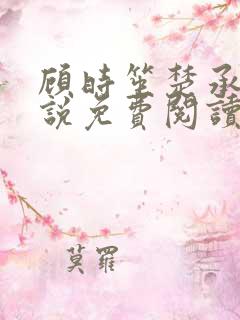 顾時笙楚承
說免費閱讀
莫羅